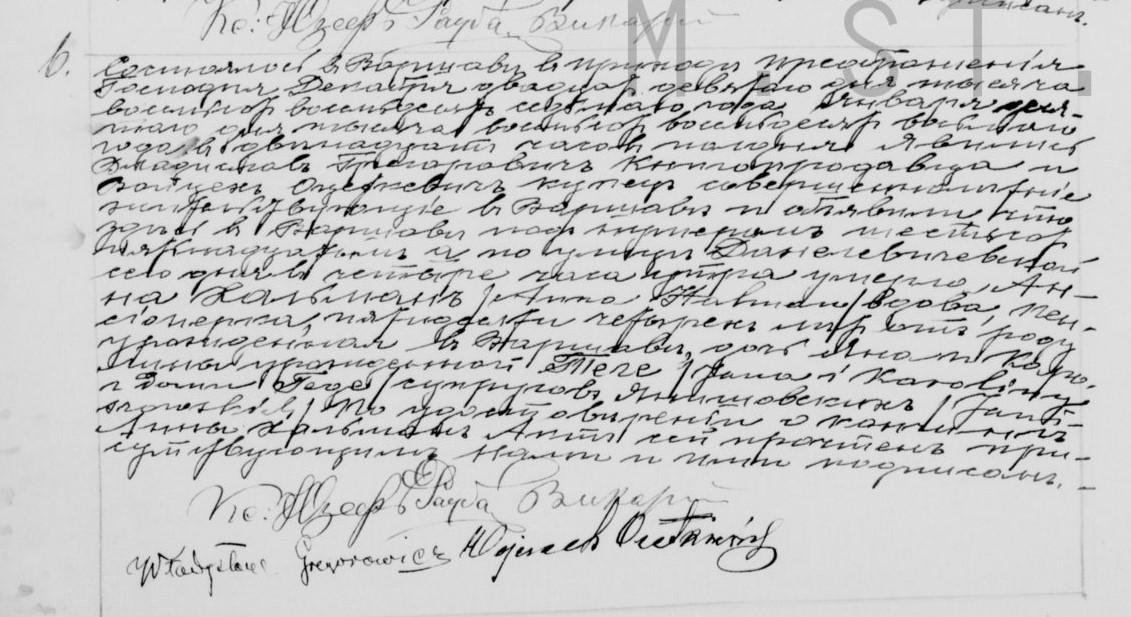 подписанъ.
Кс: Юзефъ Рауба Викарій
M.S.T.
6. Состоялось въ Варшавѣ въ приходѣ преображенія
Господня Декабря двадцать девятаго дня тысяча
восемьсотъ восемьдесятъ седьмаго года Января деся-
таго дня тысяча восемьсотъ восемьдесятъ восьмаго
года въ двѣнадцать часовъ полудня Явились
Владиславъ Грегоровичъ Книгопродавца и
Войцехъ купецъ совершеннолѣтніе
жительствующіе в Варшавѣ и объявили что
здѣсь в Варшавѣ подъ нумеромъ шестьсотъ
пятнадцатымъ а по улицѣ Даниловичевской
сего дня в четыре часа утра умерла Ан-
на Хальманъ /Anna Halman/ вдова, пен-
сіонерка, пятидесяти четырехъ лѣтъ отъ роду
урожденная в Варшавѣ, дочь Яна и Каро-
лины урожденной Геге /Jana i Karoliny
z Domu Gege/ супруговъ Янишовскихъ /Jani-
szowskich/ По удостовѣреніи о кончинѣ
Анны Хальманъ Актъ сей прочтенъ при-
сутствующимъ нами и ими подписанъ.
Кс: Юзефъ Рауба Викарій
Władysław Gregorowicz Wojciech